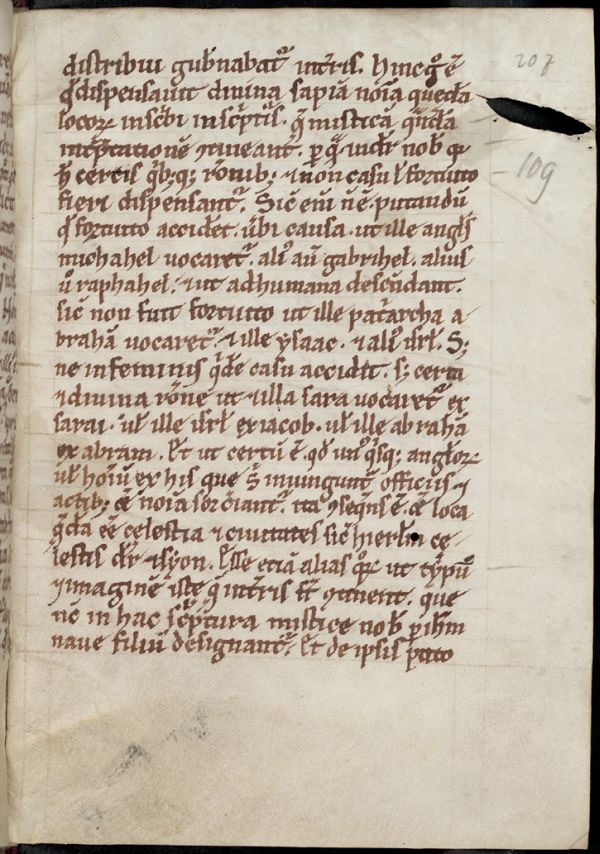 207
109
distribui gub̄nabat᷑ int̄ris. hinc ḡ ē
q̄d dispensauit diuina sapīa nōīa quedā
locoꝝ insc̄bi insc̄ptis. q̄ misticā qn̄dā
int̄p̄tationē ꝯtineant. per q̄ uid᷑ nob̄
h̄ certis qb; q; rōnib; ⁊ non casu ul̄ fortuito
fieri dispensant᷑. Sic eni nē putandū
qd fortuito accidet. ubi causa. ut ille angl̄s
michahel uocaret᷑. aliꝰ aū gabrihel. alius
ū raphahel. ⁊ ut ad humana descendant.
sic non fuit fortuito ut ille patarcha a-
brahā uocaret᷑. ⁊ ille ysaac. ⁊ aliꝰ isrl̄. S;
ne in feminis qde casu accidit. s; certa
⁊ diuina rōne ut ⁊ illa sara uocaret᷑ ex
sarai. ul̄ ille isrl̄ ex iacob. ul̄ ille abrahā
ex abram. Et ut certū ē. qd unꝰ qsq; angloꝝ
ul̄ hoīū ex his que s̄ inungunt᷑ officiis ⁊
actib; ēē nōīa sorciant᷑. ita ꝯseqn̄s ē ēē loca
q̄da ēē celestia ⁊ ciuitates sic hierl̄m ce-
lestis dr̄ ⁊ syon. Esse eciā alias qꝝ ut typū
⁊ imaginē iste q̄ int̄ris st̄ ꝯtinent. que
nē in hac sc̄ptura mistice nob̄ per ih̄m
naue filiū designant᷑. Et de ipsis puto